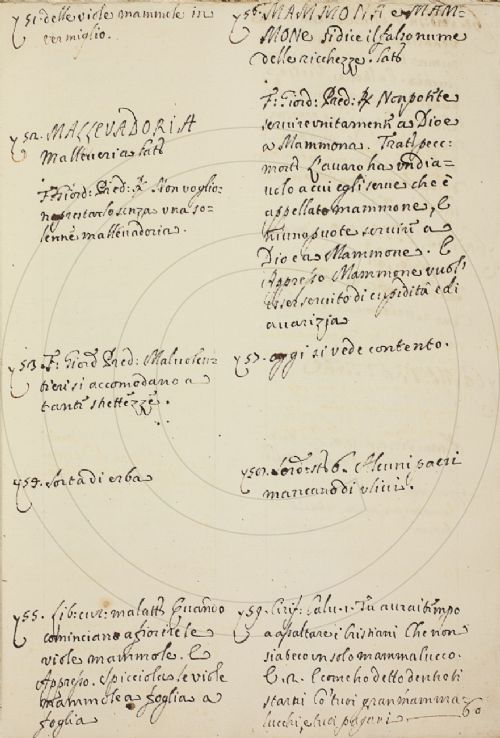 751. delle viole mammole in
vermiglio.
752. MALLEVADORIA
Malleveria latt
F. Giord: Pred: R Non voglio-
no prestarlo senza una so-
lenne mallevadoria.
753. F: Giord Pred: Malvolen-
tieri si accomodano a
tante strettezze.
754. Sorta di erba
755. Lib: cur: malatt: Quando
cominciano a fiorire le
viole mammole. E
Appresso. Spicciola le viole
mammole a foglia a
foglia
756. MAMMONA e MAM-
MONE si dice il falso nume
delle ricchezze. latt
F: Giord: Pred: R Non potete
servire unitamente a Dio e
a Mammona. Tratt pecc:
mort L'avaro ha un dia-
volo a cui egli serve che è
appellato mammone, E
niuno puote servire a
Dio e a Mammone. E
Appresso Mammone vuole
esser servito di cupidità e di
avarizia
757. oggi si vede contento.
758. Alcuni paesi
mancano di ulivi.
759. Cirif: Calv. 1. Tu avrai tempo
a assaltare i Cristiani Che non
sia beco un solo mammalucco.
E con ho detto dentro ti
starai Co' tuoi gran mamma-
lucchi, e tuoi pagani
60